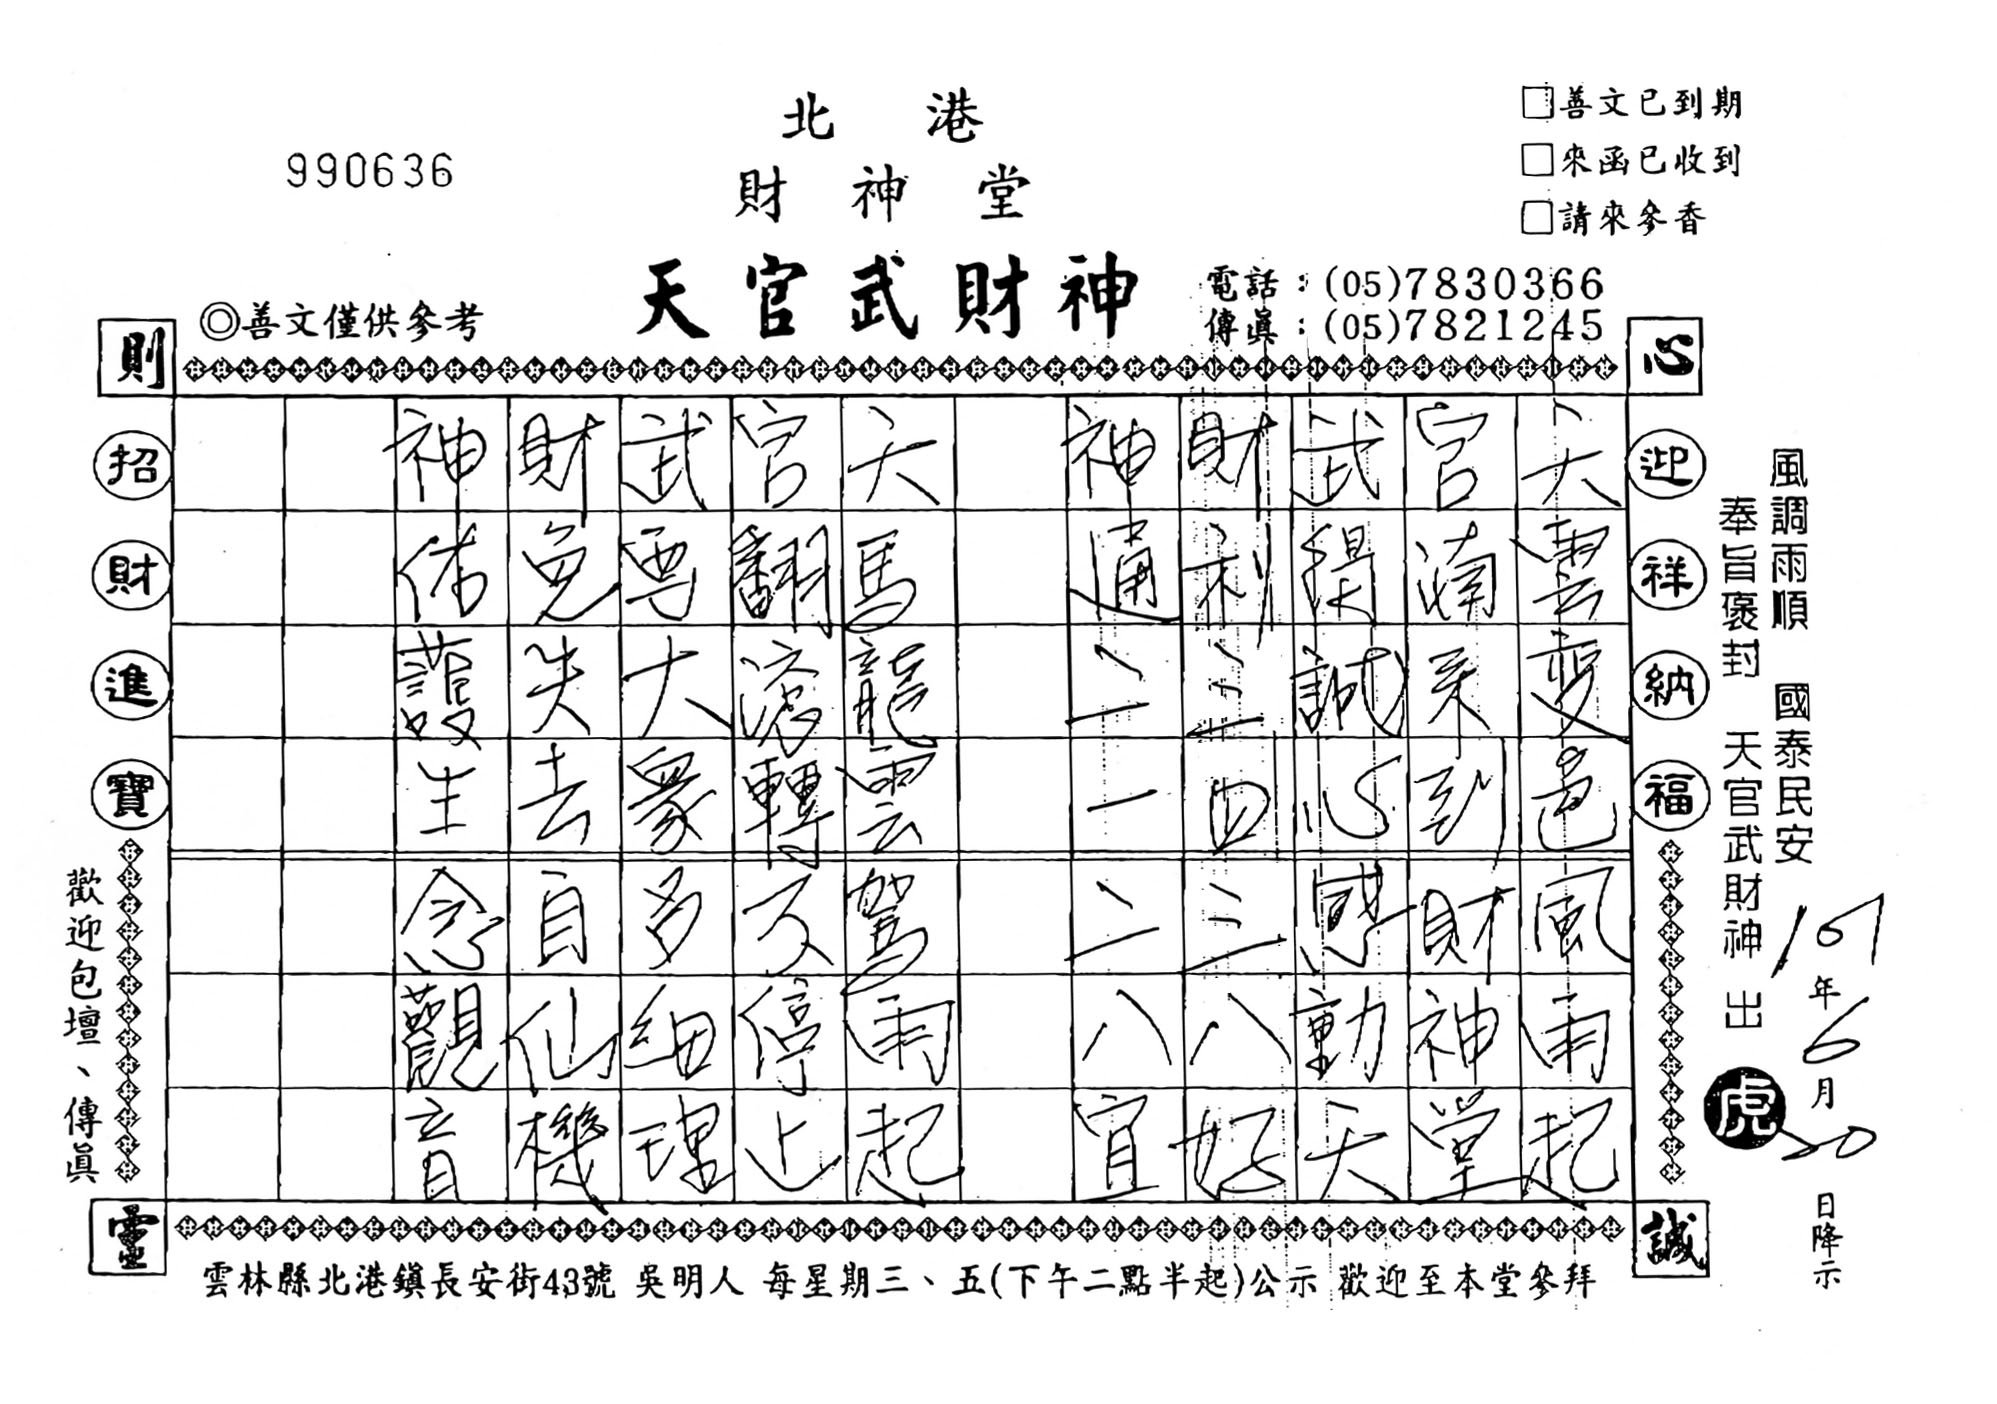 990636
北港
財神堂
天官武財神
□善文已到期
□來函已收到
□請來參香
◎善文僅供參考
電話：(05)7830366
傳眞：(05)7821245
心
誠
則
靈
迎祥納福
招財進寶
風調雨順 國泰民安
奉旨褒封 天官武財神 出
虎
107年6月20日降示
天雲變色風雨起
官來到財神堂
武得誠心感動天
財利三四三八好
神通二一二八宜
天馬龍雲駕雨起
官翻滾轉不停止
武大眾多細理
財免失去自仙機
神佑護生念觀音
歡迎包壇、傳眞
雲林縣北港鎮長安街43號 吳明人 每星期三、五(下午二點半起)公示 歡迎至本堂參拜